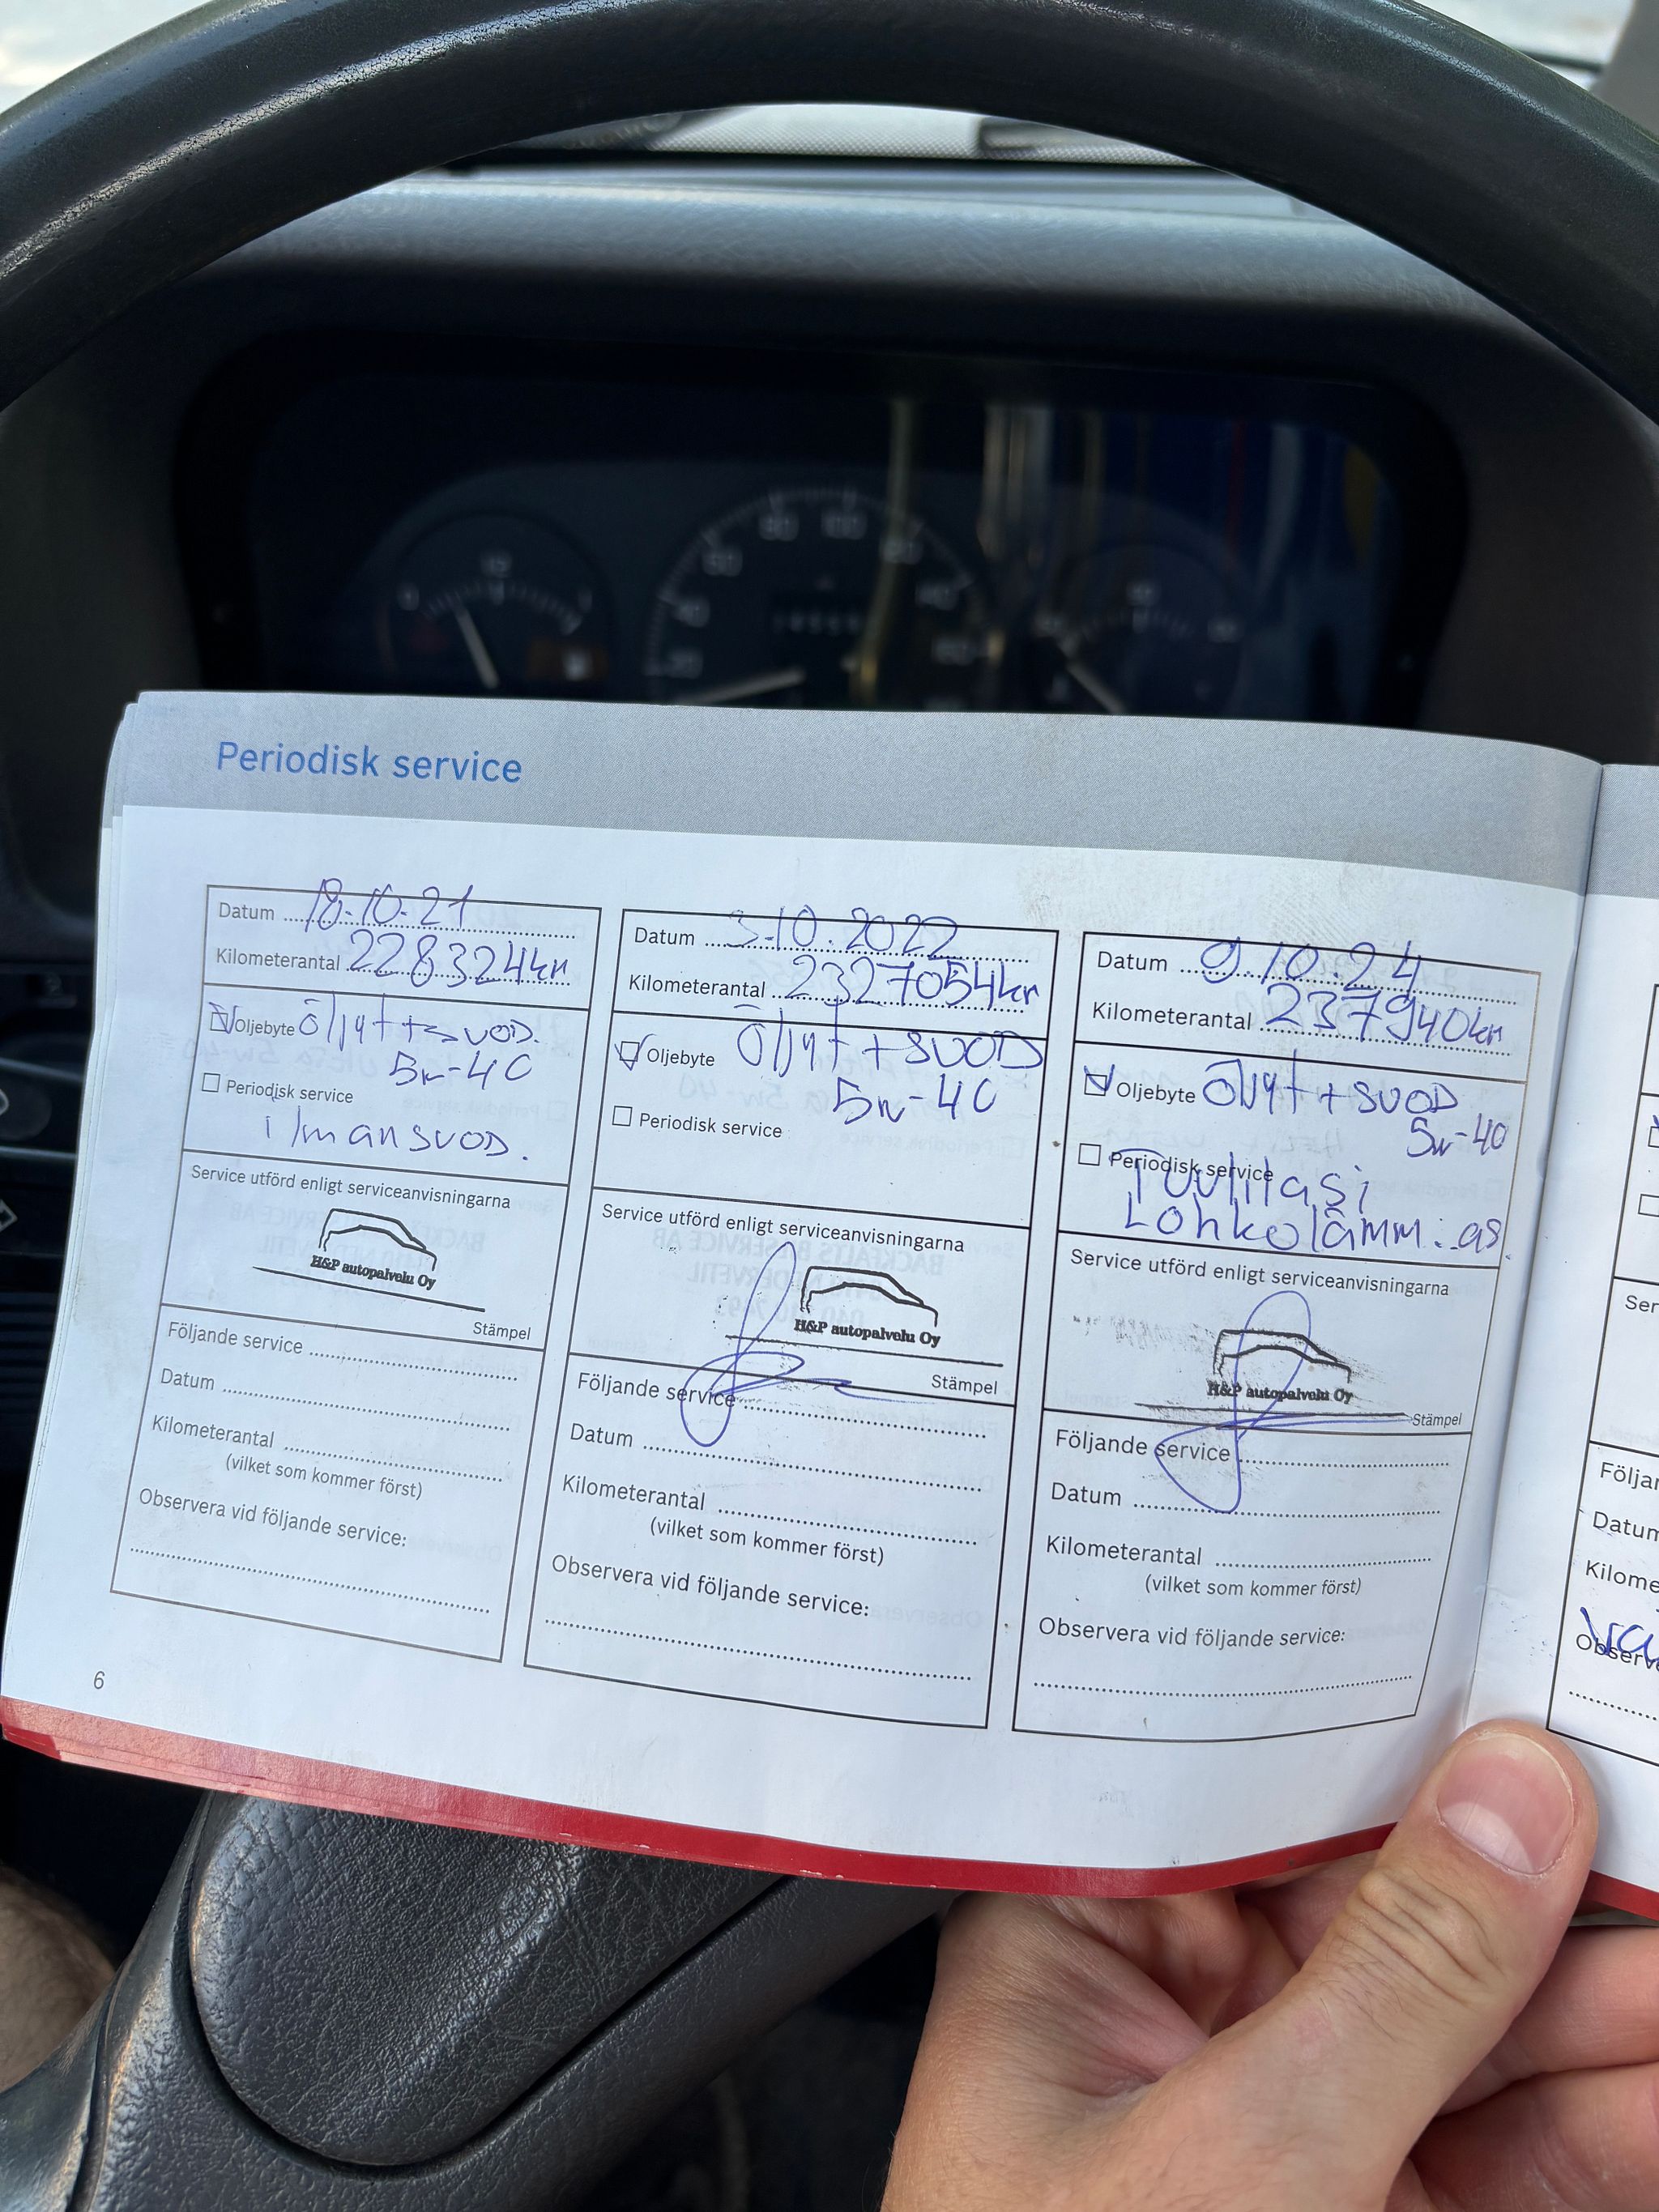 Periodisk service
Datum 18.10.21
Kilometerantal 228324km
Oljebyte öljyt + suod.
5w-40
Periodisk service
ilmansuod.
Service utförd enligt serviceanvisningarna
H&P autopalvelu Oy
Stämpel
Följande service
Datum
Kilometerantal
(vilket som kommer först)
Observera vid följande service:
6
Datum 3.10.2022
Kilometerantal 2327054km
Oljebyte öljyt + suod
5w-40
Periodisk service
Service utförd enligt serviceanvisningarna
H&P autopalvelu Oy
Stämpel
Följande service
Datum
Kilometerantal
(vilket som kommer först)
Observera vid följande service:
Datum 9.10.24
Kilometerantal 237940km
Oljebyte öljyt + suod
5w-40
Periodisk service
Tuulilasi
Lohkolämm. as.
Service utförd enligt serviceanvisningarna
H&P autopalvelu Oy
Stämpel
Följande service
Datum
Kilometerantal
(vilket som kommer först)
Observera vid följande service: